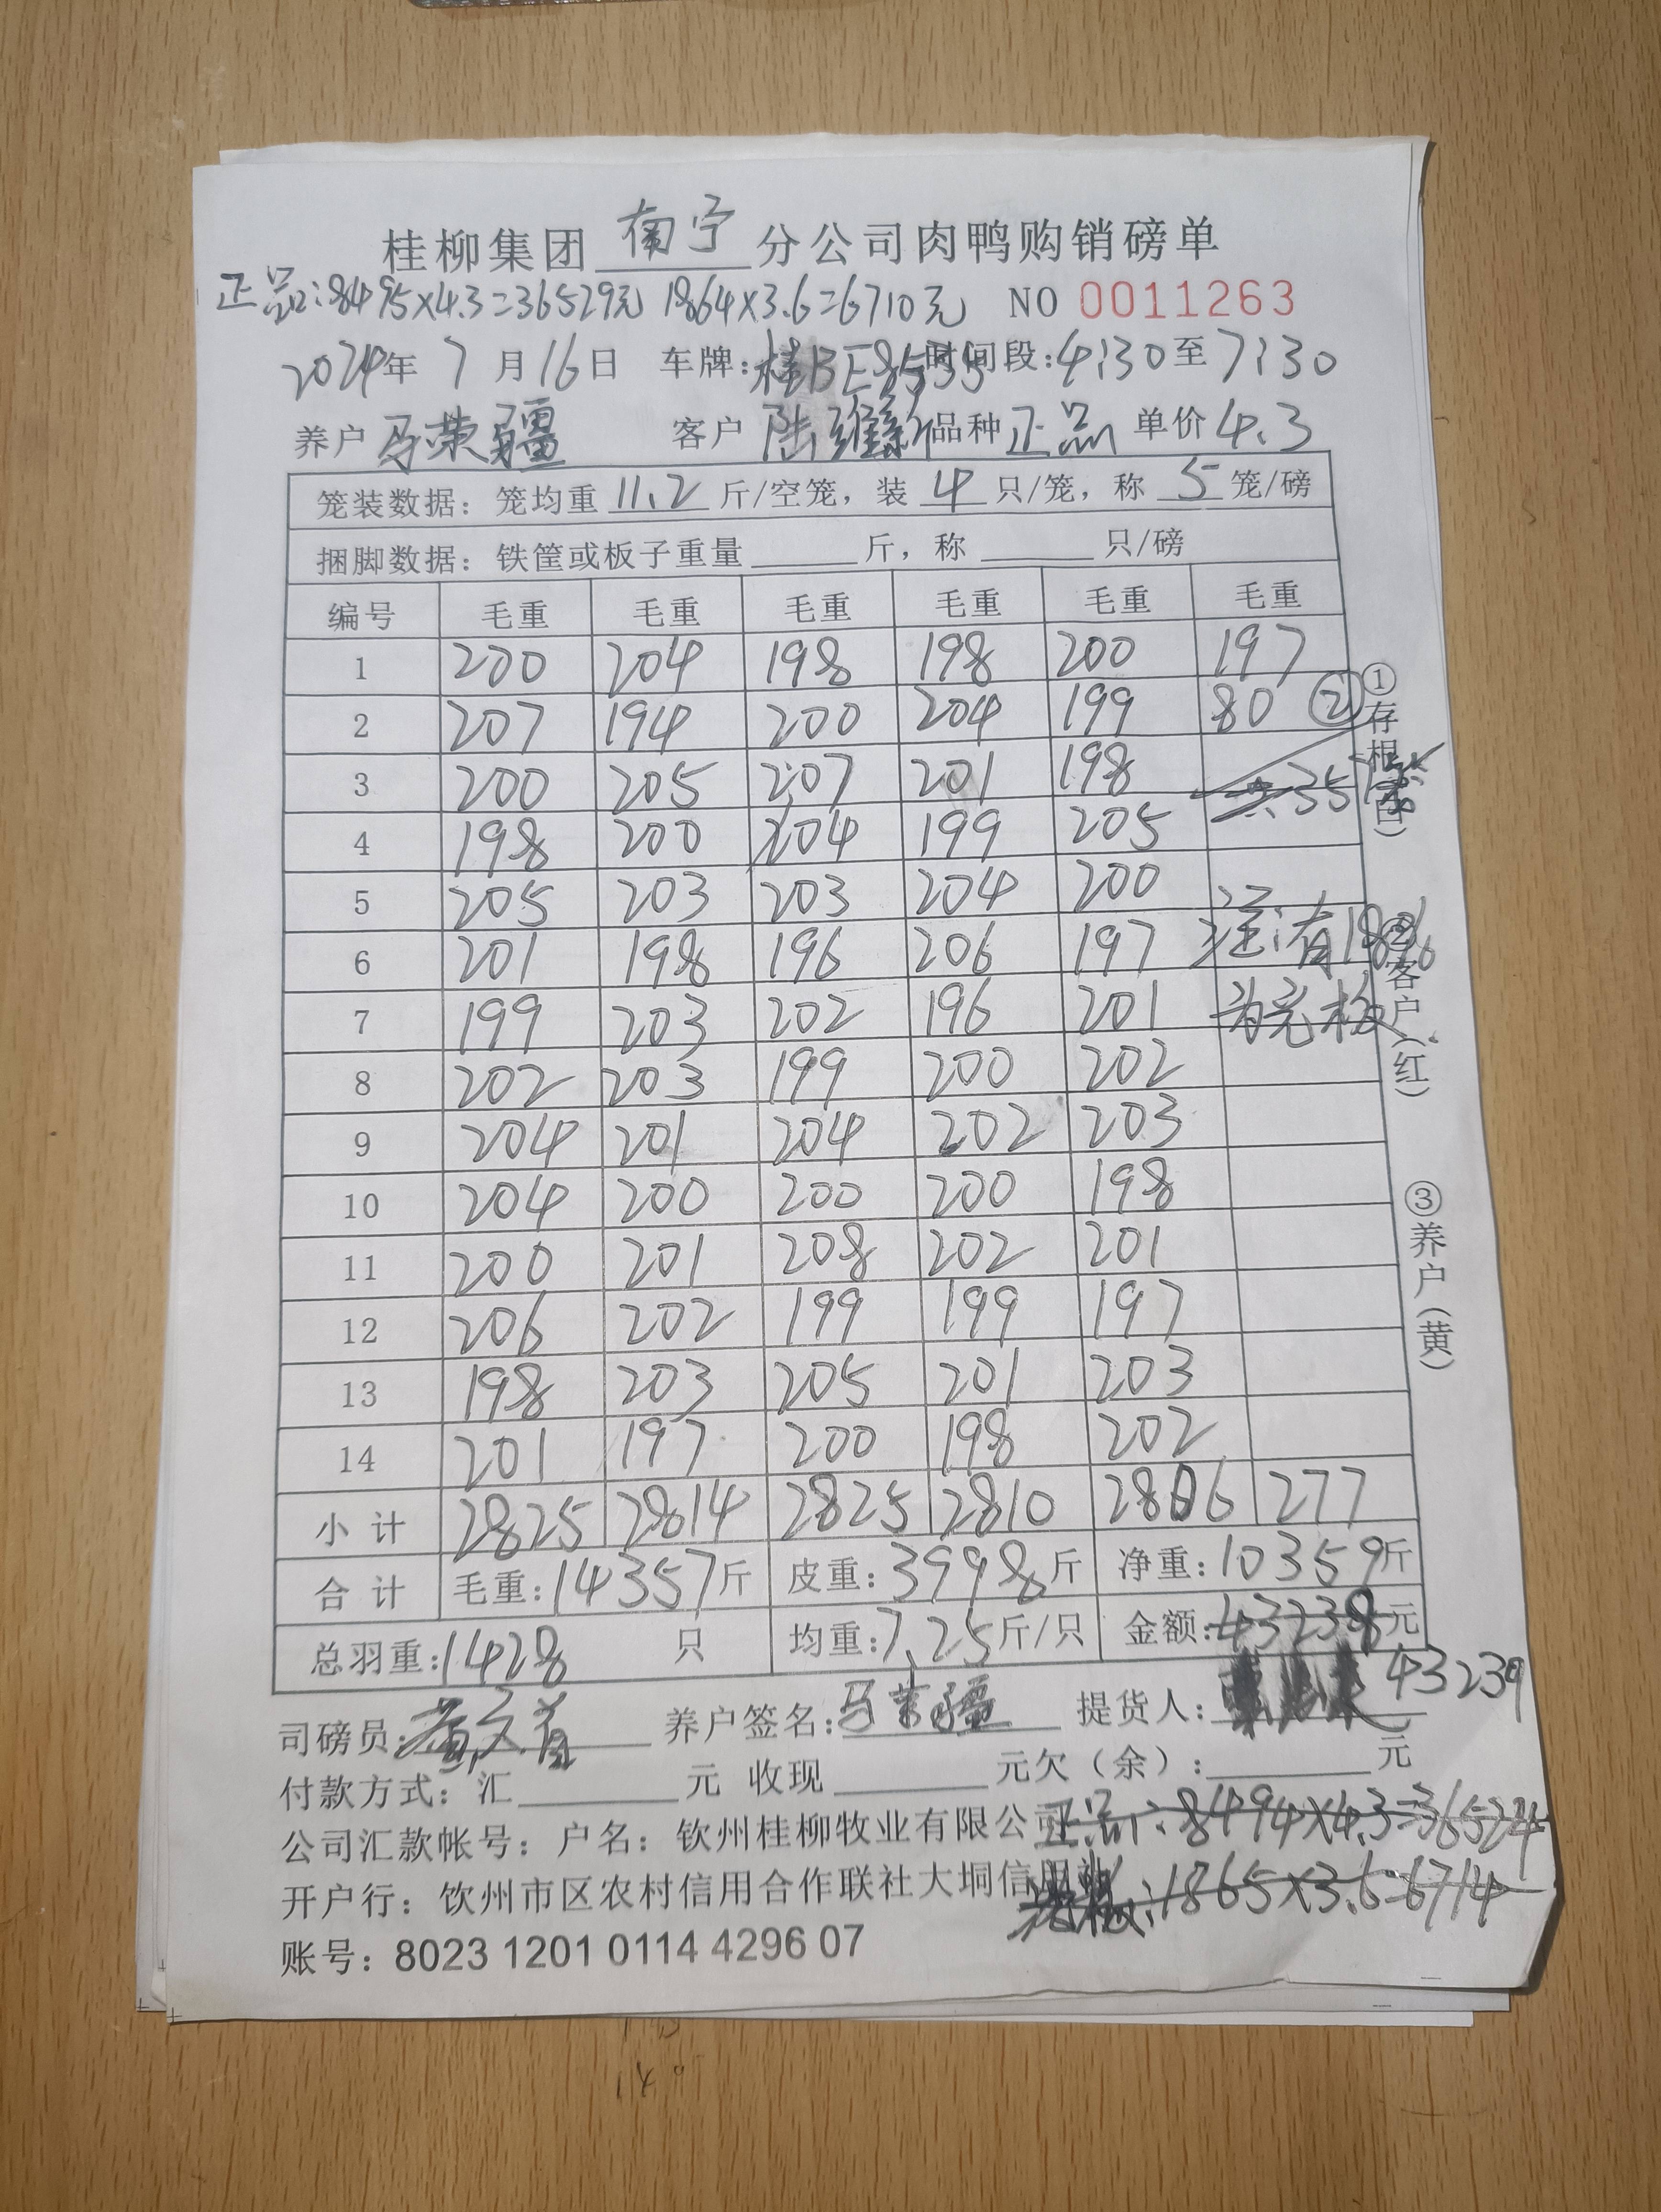 桂柳集团 南宁 分公司肉鸭购销磅单
正品:8495×4.3=36529元 1864×3.6=6710元 NO 0011263
2024年 7 月 16 日 车牌:桂BE8535 时间段:4:30 至 7:30
养户 马荣疆 客户 陆维新 品种 正品 单价 4.3
笼装数据: 笼均重 11.2 斤/空笼, 装 4 只/笼, 称 5 笼/磅
捆脚数据: 铁筐或板子重量 斤, 称 只/磅
编号 毛重 毛重 毛重 毛重 毛重 毛重
1 200 204 198 198 200 197
2 207 194 200 204 199 80 ②
3 200 205 207 201 198 共35
4 198 200 204 199 205
5 205 203 203 204 200
6 201 198 196 206 197 注:有18%
7 199 203 202 196 201 为光板
8 202 203 199 200 202
9 204 201 204 202 203
10 204 200 200 200 198
11 200 201 208 202 201
12 206 202 199 199 197
13 198 203 205 201 203
14 201 197 200 198 202
小计 2825 2814 2825 2810 2806 277
合计 毛重:14357斤 皮重:3998斤 净重:10359斤
总羽重:1428 只 均重:7.25斤/只 金额:43238元
43239
司磅员: 养户签名:马荣疆 提货人:
付款方式: 汇 元 收现 元欠(余): 元
公司汇款帐号: 户名: 钦州桂柳牧业有限公司
正品:8494×4.3=36524
开户行: 钦州市区农村信用合作联社大垌信用社
光板:1865×3.6=6714
账号: 8023 1201 0114 4296 07
①存根(白)
②客户(红)
③养户(黄)